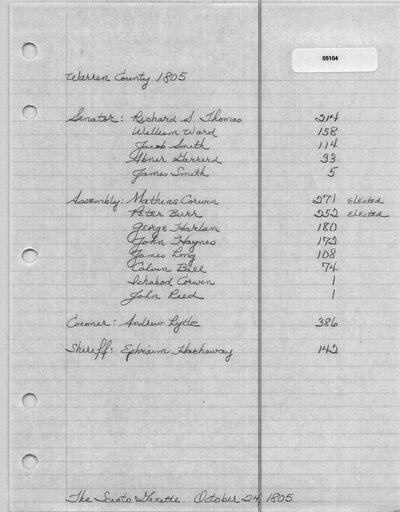 05104
Warren County 1805
Senator: Richard S. Thomas 214
William Ward 158
Jacob Smith 114
Abner Garrard 33
James Smith 5
Assembly: Mathias Corwin 271 Elected
Peter Burr 252 Elected
George Harlan 180
John Haynes 172
James Long 108
Calvin Ball 74
Ichabod Corwin 1
John Reed 1
Coroner: Andrew Lytle 386
Sheriff: Ephraim Hathaway 142
The Scioto Gazette. October 24, 1805